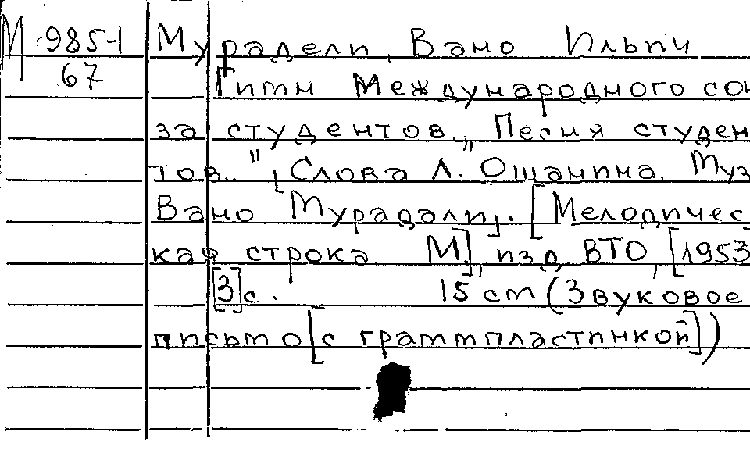 М 985-1 Мурадели, Вано Ильич
67
Гимн Международного сою
за студентов. "Песня студен
тов." [Слова Л. Ошанина. Муз
Вано Мурадали]. [Мелодичес
кая строка М], изд. ВТО, [1953
[3]с. 15 см (Звуковое
письмо [с граммпластинкой])